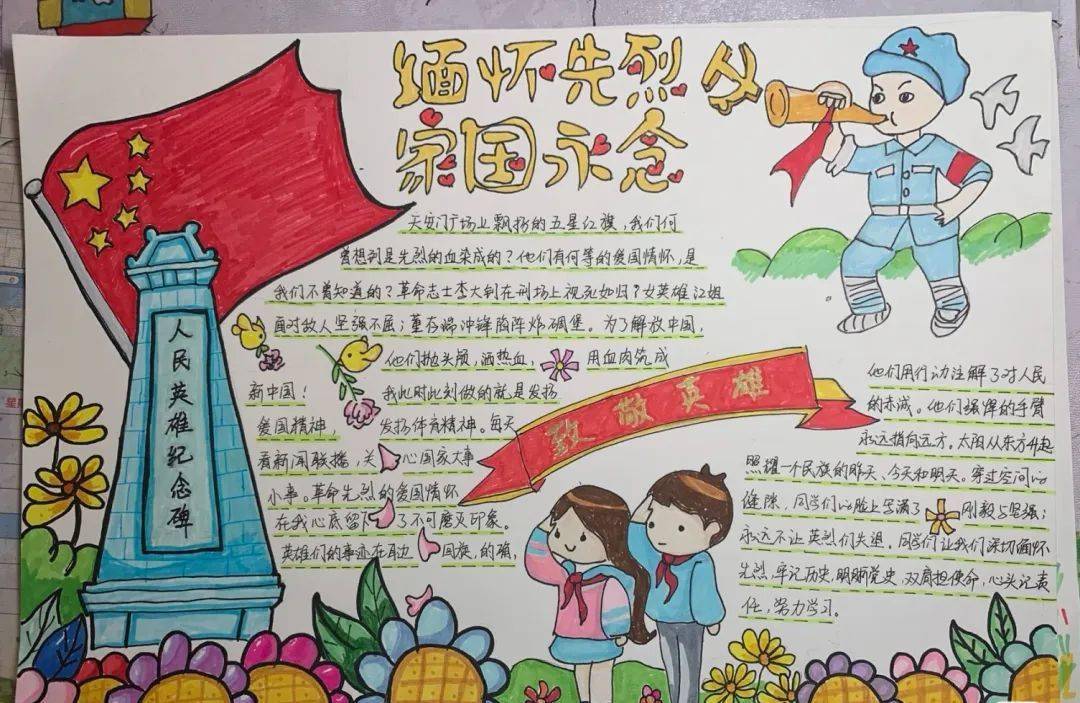 缅怀先烈
家国永念
人民英雄纪念碑
天安门广场上飘扬的五星红旗，我们何
曾想到是先烈的血染成的？他们有何等的爱国情怀，是
我们不曾知道的？革命志士李大钊在刑场上视死如归？女英雄江姐
面对敌人坚强不屈；董存瑞冲锋陷阵炸碉堡。为了解放中国，
他们抛头颅，洒热血，用血肉筑成
新中国！我此时此刻做的就是发扬
爱国精神，发扬体育精神。每天
看新闻联播，关心国家大事
小事。革命先烈的爱国情怀
在我心底留下了不可磨灭印象。
英雄们的事迹在耳边国族，的
致敬英雄
他们用行动注解了对人民
的赤诚。他们强悍的手臂
永远指向远方，太阳从东方升起
照耀一个民族的昨天、今天和明天。穿过空间的
缝隙，同学们的脸上写满了刚毅与坚强；
永远不让英烈们失望。同学们让我们深切缅怀
先烈，牢记历史，明晰党史，双肩担使命，心头记责
任，努力学习。